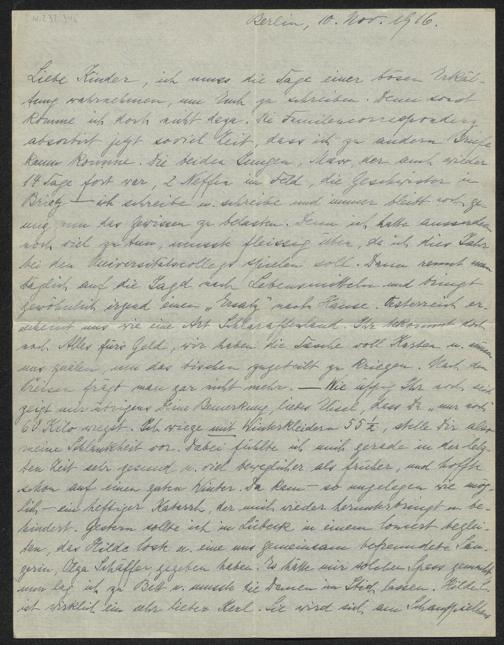 Berlin, 10. Nov. 1916.
Liebe Kinder, ich muss die Tage einer bösen Erkäl-
tung wahrnehmen, um Euch zu schreiben. Denn sonst
komme ich doch nicht dazu. Die Familiencorrespondenz
absorbirt jetzt soviel Zeit, dass ich zu andern Briefen
kaum komme. Die beiden Jungen, Max, der auch wieder
14 Tage fort war, 2 Neffen im Feld, die Geschwister in
Brieg – ich schreibe u. schreibe und immer bleibt noch ge-
nug, um das Gewissen zu belasten. Denn ich hatte ausserdem
noch viel zu tun, musste fleissig üben, da ich dies Jahr
bei den Universitätscollegs spielen soll. Dann rennt man
täglich auf die Jagd nach Lebensmitteln und bringt
gewöhnlich irgend einen „Ersatz" nach Hause. Österreich er-
scheint uns wie eine Art Schlaraffenland. Ihr bekommt doch
noch Alles fürs Geld, wir haben die Tasche voll Karten u.
uns quälen, um das bischen zugeteilt zu kriegen. Nach den
Preisen frägt man gar nicht mehr. — Wie üppig Ihr noch seid
zeigt mir übrigens Deine Bemerkung, liebes, dass Du „nur noch
60 Kilo wiegst. Ich wiege mit Winterkleidern 55 ½, stelle Dir also
meine Schlankheit vor. Dabei fühlte ich mich gerade in der letz-
ten Zeit sehr gesund u. viel beweglicher als früher, und hoffte
schon auf einen guten Winter. Da kam – so ungelegen wie mög-
lich – ein heftiger Katarrh, der mich wieder herunterbringt u. be-
hindert. Gestern sollte ich in Lübeck in einem Concert beglei-
ten, das Hilde u. eine uns gemeinsam befreundete Sän-
gerin, Olga Schäffer, gegeben haben. Es hätte mir solchen Spass gemacht,
nun lag ich zu Bett u. musste die Damen im Stich lassen. Hilde
ist wirklich ein sehr lieber Kerl. Sie wird sich am Schauspielhaus